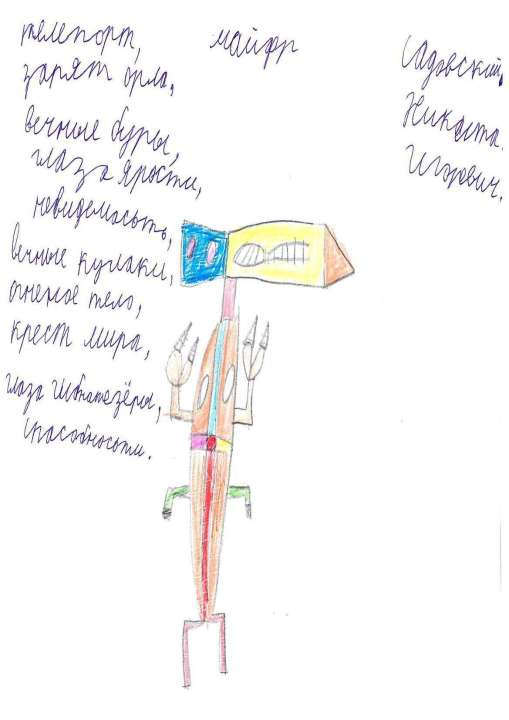 телепорт,
зарят орла,
вечные буры,
глаза ярости,
невидемасыть,
вечные кулаки,
огненое тело,
крест мира,
глаза
способносыти.
майфр
Садовский,
Никита
Игоревич.